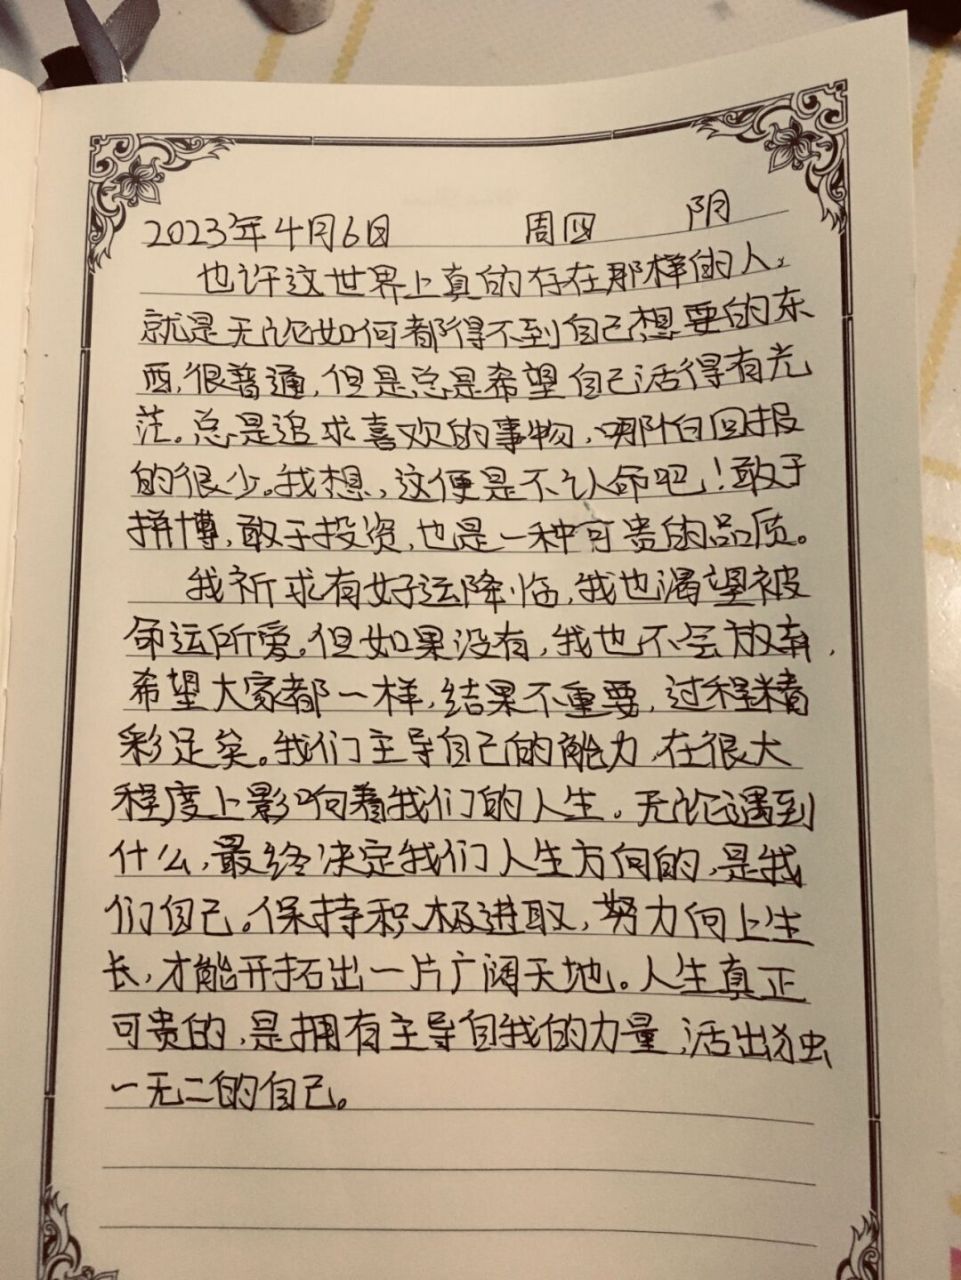 2023年4月6日 周四 阴
也许这世界上真的存在那样的人,
就是无论如何都得不到自己想要的东
西,很普通,但是总是希望自己活得有光
茫。总是追求喜欢的事物,哪怕回报
的很少。我想,这便是不认命吧！敢于
拼博,敢于投资,也是一种可贵的品质。
我祈求有好运降临,我也渴望被
命运所爱。但如果没有,我也不会放弃,
希望大家都一样,结果不重要,过程精
彩足矣。我们主导自己的能力,在很大
程度上影响着我们的人生。无论遇到
什么,最终决定我们人生方向的,是我
们自己。保持积极进取,努力向上生
长,才能开拓出一片广阔天地。人生真正
可贵的,是拥有主导自我的力量,活出独
一无二的自己。